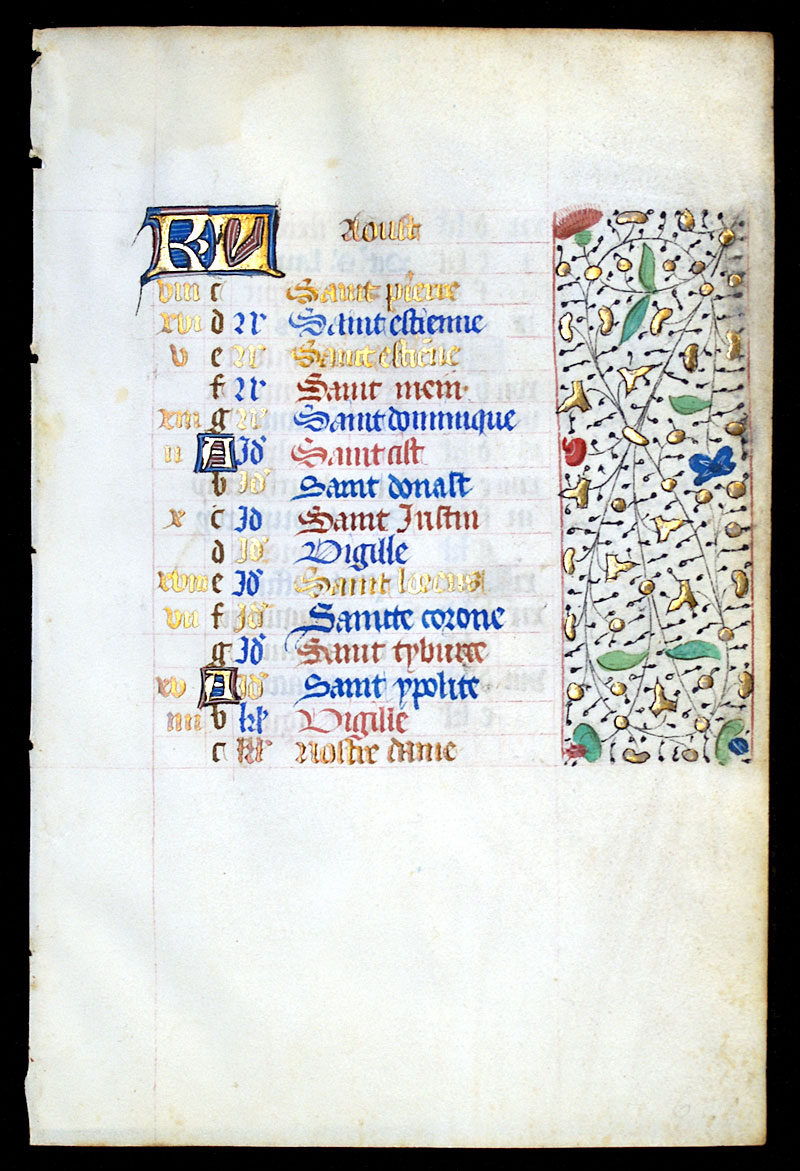 KL Aoust
viii c Saint pierre
xvi d N Saint estienne
v e N Saint estiene
f N Saint mem
xiii g N Saint dominique
ii A Id Saint cist
b Id Saint donast
x c Id Saint Justin
d Id Vigille
xviii e Id Saint lorens
vii f Id Saincte corone
g Id Saint tyburce
xv A Id Saint ypolite
iiii b kl Vigille
c kl Nostre dame